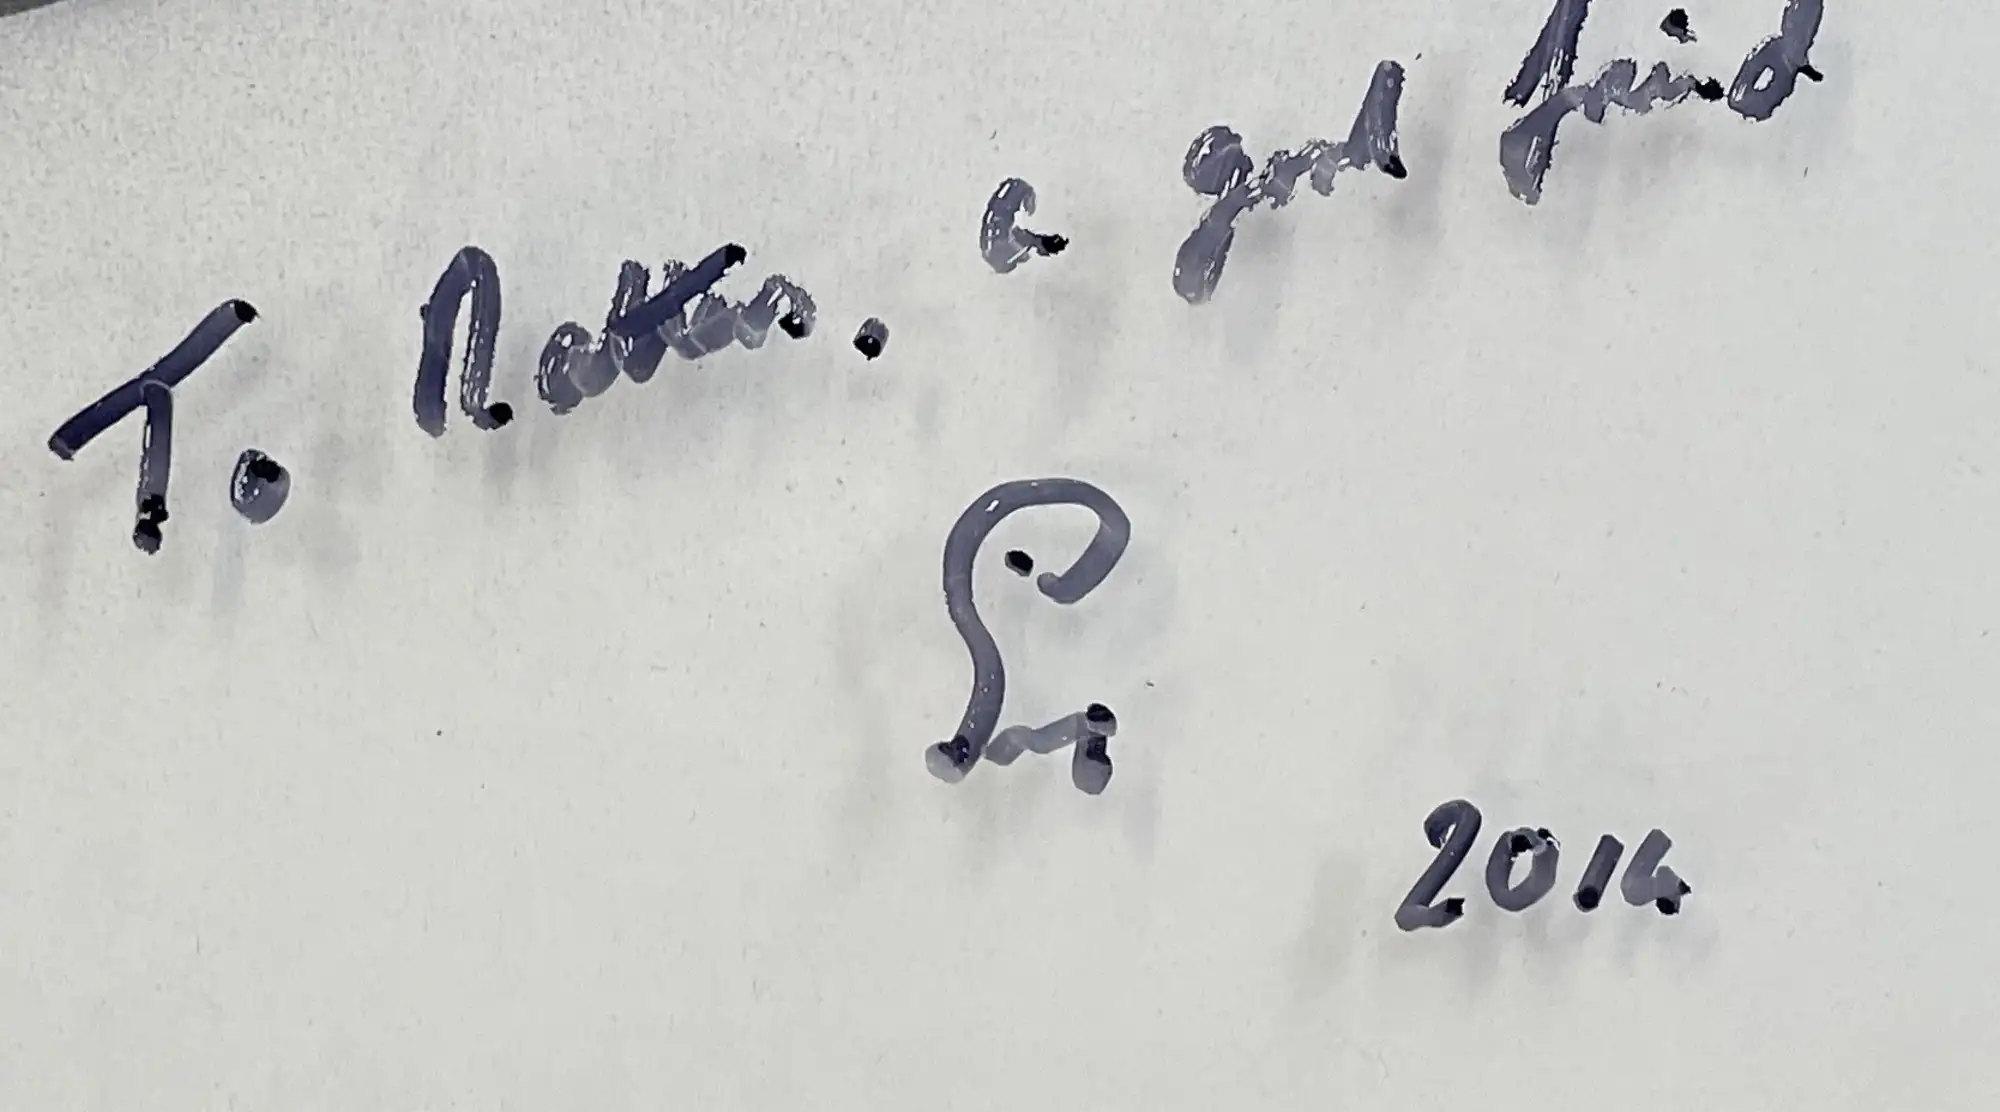 To Nathan. a good friend
2014